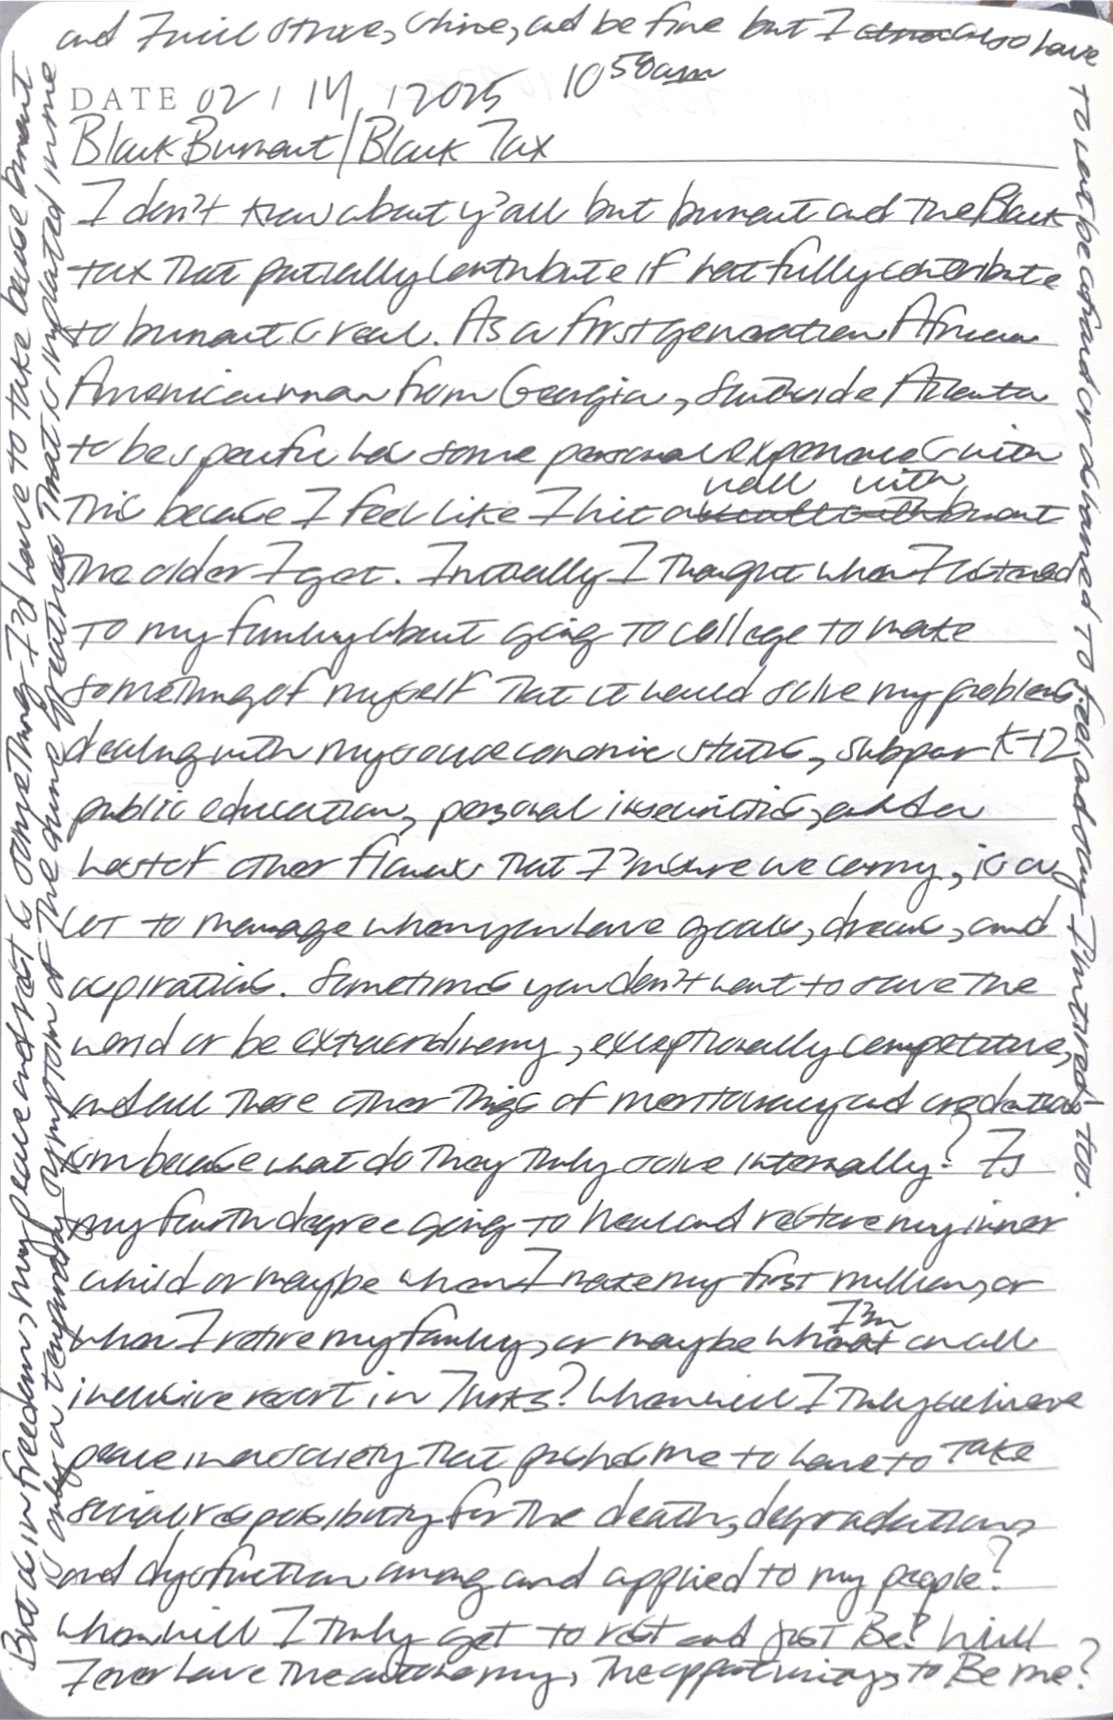 DATE 02 / 14 / 2025 10:50am
Black Burnout/Black Tax
I don't know about y'all but burnout and the Black
tax that partially contribute if not fully contribute
to burnout is real. As a first generation African
American man from Georgia, Southside Atlanta
to be specific has some personal experiences with
this because I feel like I hit a wall with burnout
the older I get. Initially I thought when I listened
to my family about going to college to make
something of myself that it would solve my problems
dealing with my socioeconomic status, subpar K-12
public education, personal insecurities, and a
host of other flaws that I'm sure we carry, is a
lot to manage when you have goals, dreams, and
aspirations. Sometimes you don't want to save the
world or be extraordinary, exceptionally competitive,
and all these other things of meritocracy and credential
ism because what do they truly solve internally? Is
my fourth degree going to heal and restore my inner
child or maybe when I make my first million, or
when I retire my family, or maybe when I'm at an all
inclusive resort in Turks? When will I truly achieve
peace in a society that pushes me to have to take
social responsibility for the death, degradation,
and dysfunction among and applied to my people?
When will I truly get to rest and just Be? Will
I ever have the autonomy, the opportunity, to Be me?
But as in freedom, my peace and rest is something I'd have to take because burnout
is only a temporary symptom of the divine greatness that is implanted in me
and I will strive, shine, and be fine but I also have
to not be afraid or ashamed to feel, and say I'm tired too.